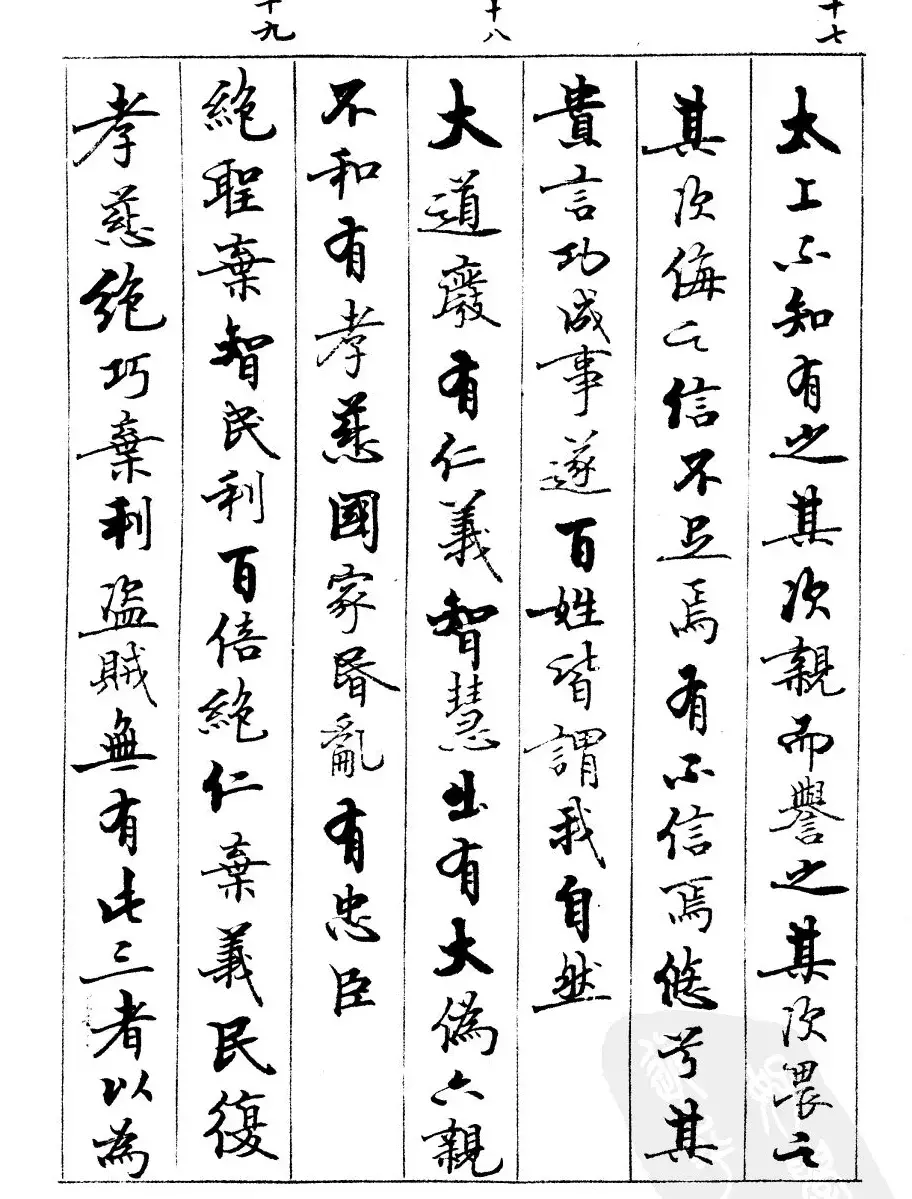 十七
太上不知有之其次親而譽之其次畏之
其次侮之信不足焉有不信焉悠兮其
貴言功成事遂百姓皆謂我自然
十八
大道廢有仁義智慧出有大偽六親
不和有孝慈國家昏亂有忠臣
十九
絕聖棄智民利百倍絕仁棄義民復
孝慈絕巧棄利盜賊無有此三者以為